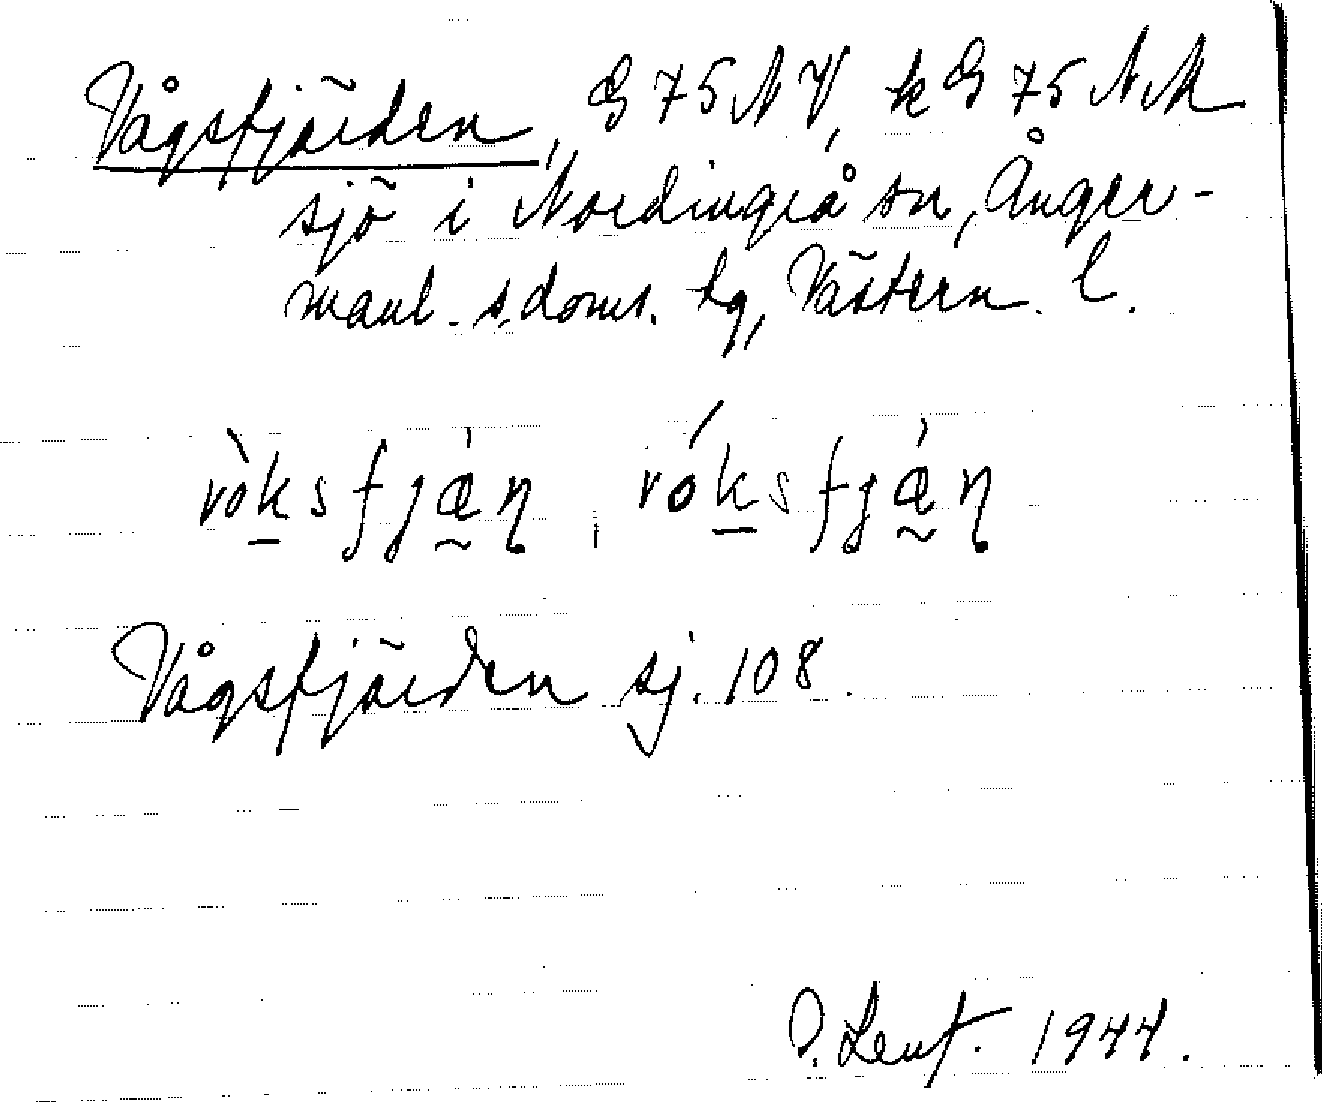 Vågsfjärden, G 75 NV, k G 75 NM
sjö i Nordingrå sn, Ånger-
manl. s. doms. tg, Västern. l.
vòksfjǽ̰ɳ, vóksfjǽ̰ɳ
Vågsfjärden sj. 108.
1944.